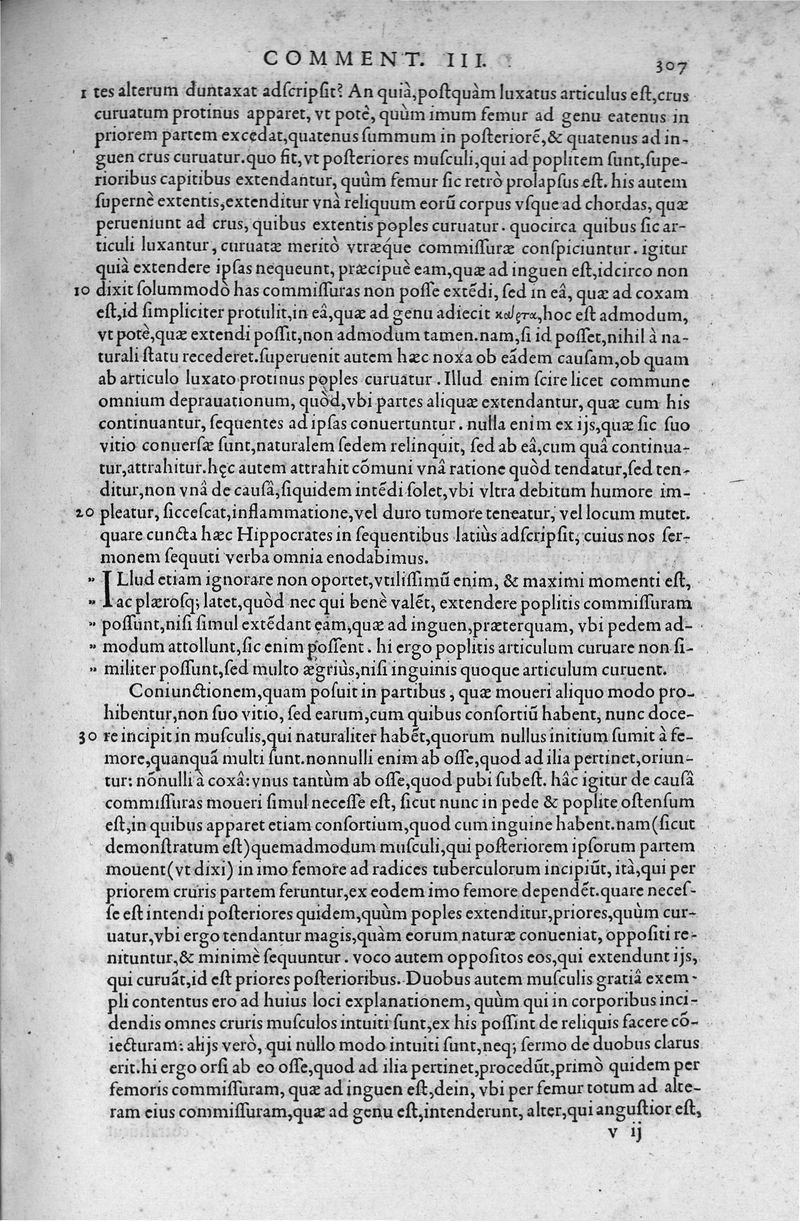 COMMENT. III. 307
1 tes alterum duntaxat adſcripſit? An quià,poſtquàm luxatus articulus eſt,crus
curuatum protinus apparet, vt potè, quùm imum femur ad genu eatenus in
priorem partem excedat,quatenus ſummum in poſteriorẽ,& quatenus ad in-
guen crus curuatur.quo fit,vt poſteriores muſculi,qui ad poplitem ſunt,ſupe-
rioribus capitibus extendantur, quùm femur ſic retrò prolapſus eſt. his autem
ſupernè extentis,extenditur vnà reliquum eorũ corpus vſque ad chordas, quæ
perueniunt ad crus, quibus extentis poples curuatur. quocirca quibus ſic ar-
ticuli luxantur, curuatæ meritò vtræque commiſſuræ conſpiciuntur. igitur
quià extendere ipſas nequeunt, præcipuè eam,quæ ad inguen eſt,idcirco non
10 dixit ſolummodò has commiſſuras non poſſe extẽdi, ſed in eâ, quæ ad coxam
eſt,id ſimpliciter protulit,in eâ,quæ ad genu adiecit hoc eſt admodum,
vt potè,quæ extendi poſſit,non admodum tamen.nam,ſi id poſſet,nihil à na-
turali ſtatu recederet.ſuperuenit autem hæc noxa ob eãdem cauſam,ob quam
ab articulo luxato protinus poples curuatur. Illud enim ſcire licet commune
omnium deprauationum, quòd,vbi partes aliquæ extendantur, quæ cum his
continuantur, ſequentes ad ipſas conuertuntur. nulla enim ex ijs,quæ ſic ſuo
vitio conuerſæ ſunt,naturalem ſedem relinquit, ſed ab eâ,cum quâ continua-
tur,attrahitur.hęc autem attrahit cõmuni vnâ ratione quòd tendatur,ſed ten-
ditur,non vnâ de cauſâ,ſiquidem intẽdi ſolet,vbi vltra debitum humore im-
20 pleatur, ſicceſcat,inflammatione,vel duro tumore teneatur, vel locum mutet.
quare cuncta hæc Hippocrates in ſequentibus latiùs adſcripſit, cuius nos ſer-
monem ſequuti verba omnia enodabimus.
" ILlud etiam ignorare non oportet,vtiliſſimũ enim, & maximi momenti eſt,
" ac plæroſq; latet,quòd nec qui benè valẽt, extendere poplitis commiſſuram
" poſſunt,niſi ſimul extẽdant eam,quæ ad inguen,præterquam, vbi pedem ad-
" modum attollunt,ſic enim poſſent. hi ergo poplitis articulum curuare non ſi-
" militer poſſunt,ſed multo ægriùs,niſi inguinis quoque articulum curuent.
Coniunctionem,quam poſuit in partibus, quæ moueri aliquo modo pro-
hibentur,non ſuo vitio, ſed earum,cum quibus conſortiũ habent, nunc doce-
30 re incipit in muſculis,qui naturaliter habẽt,quorum nullus initium ſumit à fe-
more,quanquã multi ſunt.nonnulli enim ab oſſe,quod ad ilia pertinet,oriun-
tur: nõnulli à coxâ:vnus tantùm ab oſſe,quod pubi ſubeſt. hâc igitur de cauſâ
commiſſuras moueri ſimul neceſſe eſt, ſicut nunc in pede & poplite oſtenſum
eſt,in quibus apparet etiam conſortium,quod cum inguine habent.nam(ſicut
demonſtratum eſt)quemadmodum muſculi,qui poſteriorem ipſorum partem
mouent(vt dixi) in imo femore ad radices tuberculorum incipiũt, ità,qui per
priorem cruris partem feruntur,ex eodem imo femore dependẽt.quare neceſ-
ſe eſt intendi poſteriores quidem,quùm poples extenditur,priores,quùm cur-
uatur,vbi ergo tendantur magis,quàm eorum naturæ conueniat, oppoſiti re-
nituntur,& minimè ſequuntur. voco autem oppoſitos eos,qui extendunt ijs,
qui curuãt,id eſt priores poſterioribus. Duobus autem muſculis gratiâ exem-
pli contentus ero ad huius loci explanationem, quùm qui in corporibus inci-
dendis omnes cruris muſculos intuiti ſunt,ex his poſſint de reliquis facere cõ-
iecturam: alijs verò, qui nullo modo intuiti ſunt,neq; ſermo de duobus clarus
erit.hi ergo orſi ab eo oſſe,quod ad ilia pertinet,procedũt,primò quidem per
femoris commiſſuram, quæ ad inguen eſt,dein, vbi per femur totum ad alte-
ram eius commiſſuram,quæ ad genu eſt,intenderunt, alter,qui anguſtior eſt,
v ij